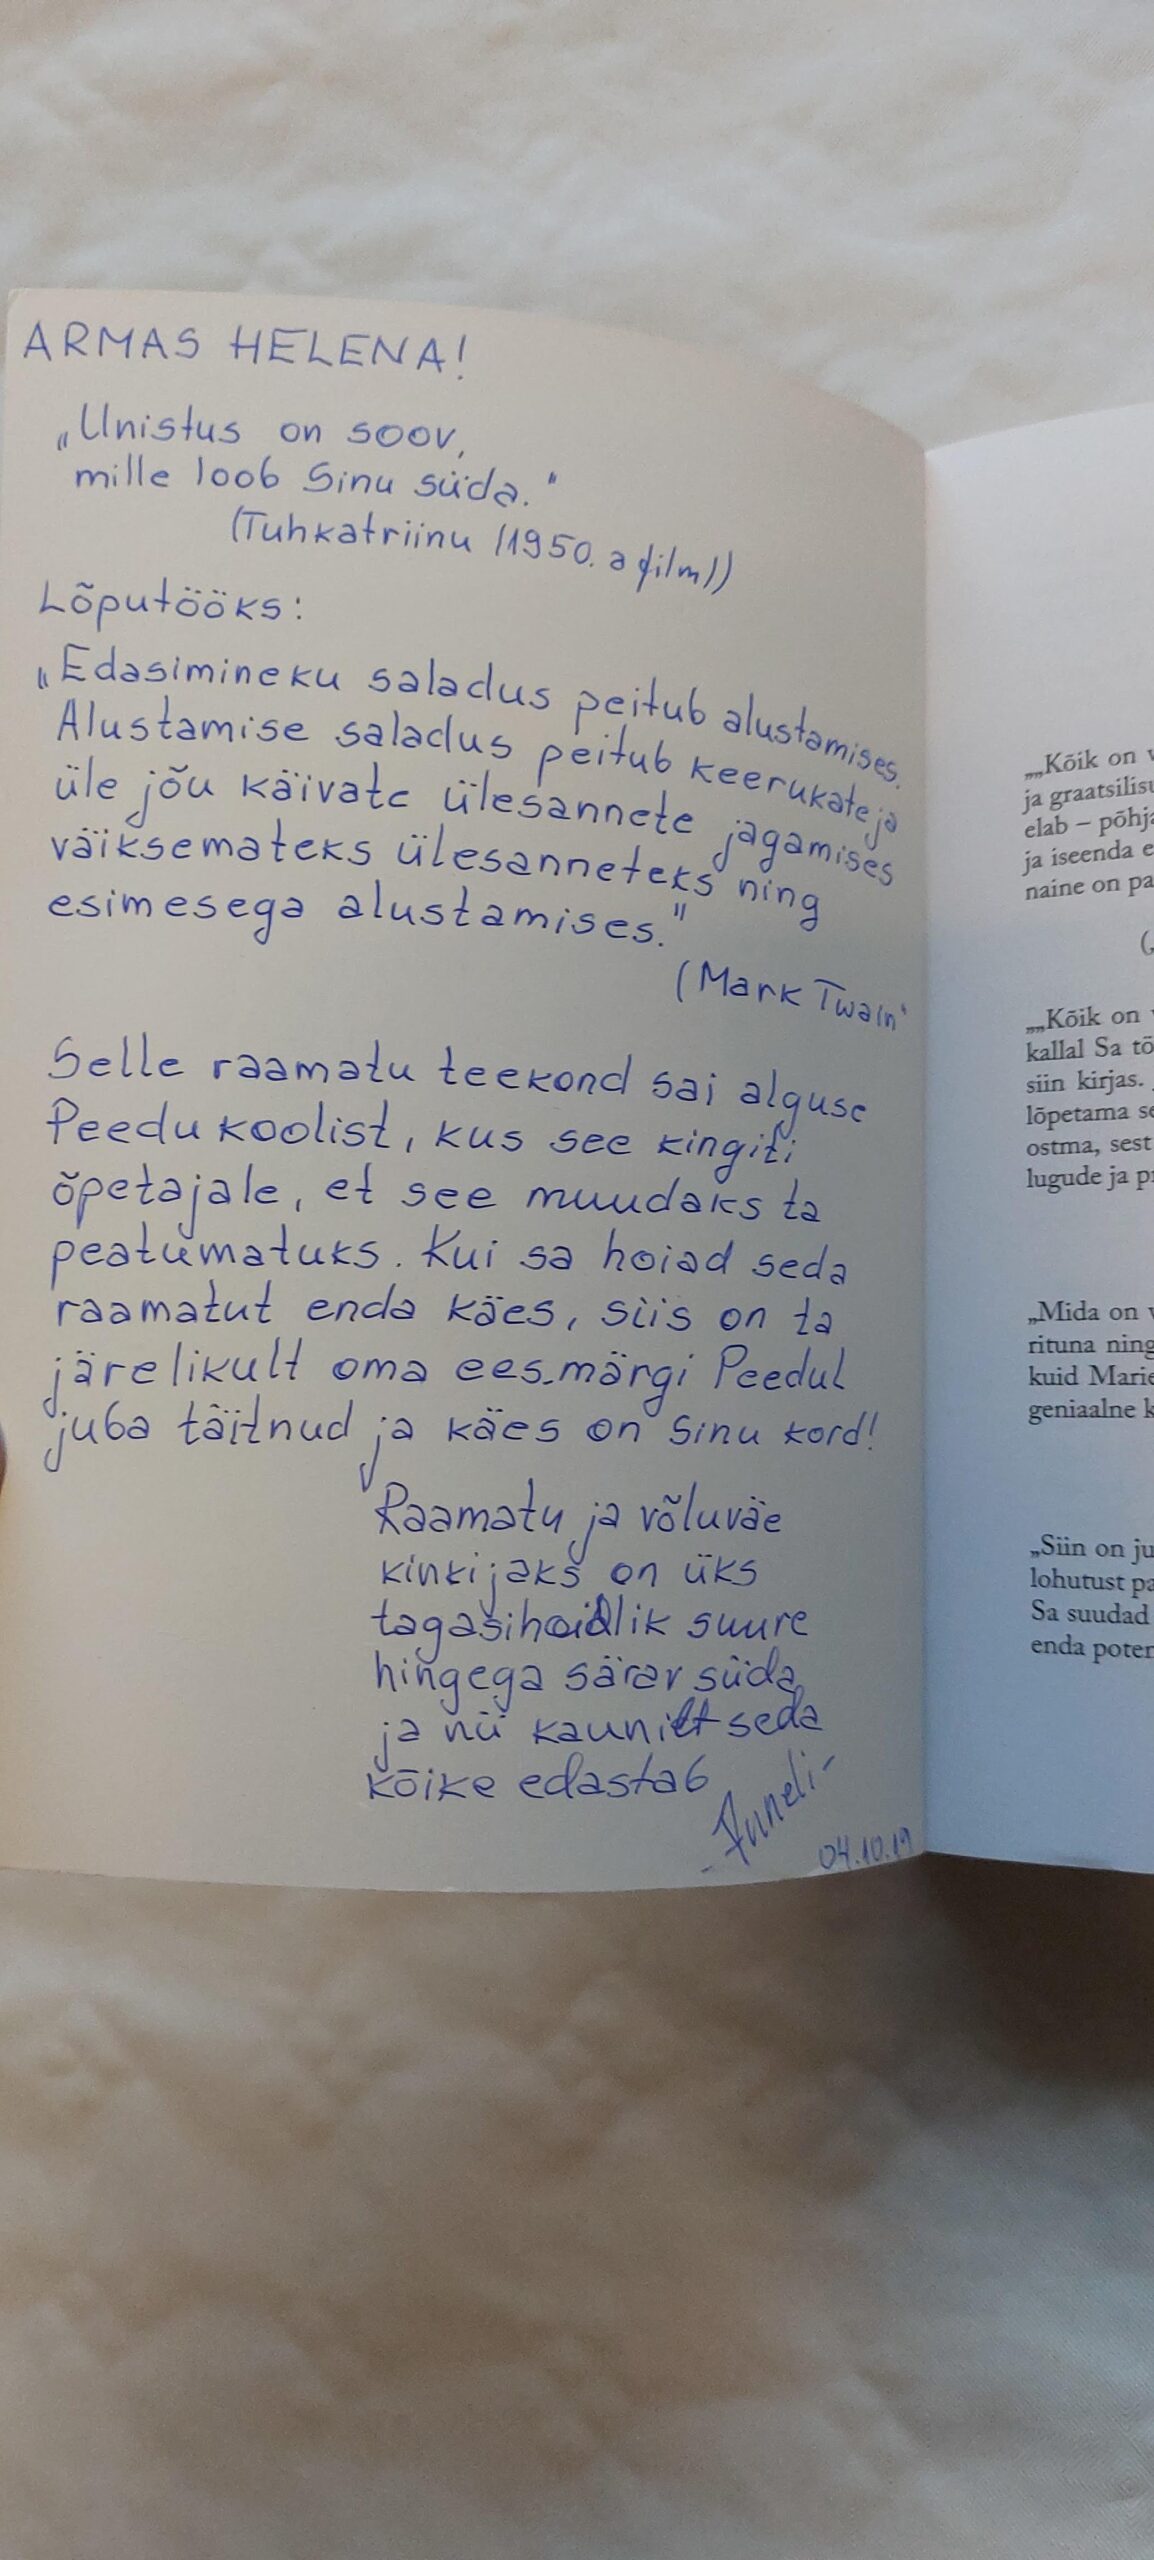 ARMAS HELENA!
„Unistus on soov,
mille loob Sinu süda."
(Tuhkatriinu (1950. a film))
Lõputööks:
„Edasimineku saladus peitub alustamises.
Alustamise saladus peitub keerukate ja
üle jõu käivate ülesannete jagamises
väiksemateks ülesanneteks ning
esimesega alustamises."
(Mark Twain
Selle raamatu teekond sai alguse
Peedu koolist, kus see kingiti
õpetajale, et see muudaks ta
peatumatuks. Kui sa hoiad seda
raamatut enda käes, siis on ta
järelikult oma eesmärgi Peedul
juba täitnud ja käes on Sinu kord!
Raamatu ja võluväe
kinkijaks on üks
tagasihoidlik suure
hingega särav süda
ja nii kaunilt seda
kõike edastab
-Anneli-
04.10.19
„„Kõik on v
ja graatsilisu
elab – põhja
ja iseenda e
naine on pa
(
„„Kõik on v
kallal Sa tö
siin kirjas.
lõpetama se
ostma, sest
lugude ja pr
„Mida on v
rituna ning
kuid Marie
geniaalne k
„Siin on ju
lohutust pa
Sa suudad
enda poten